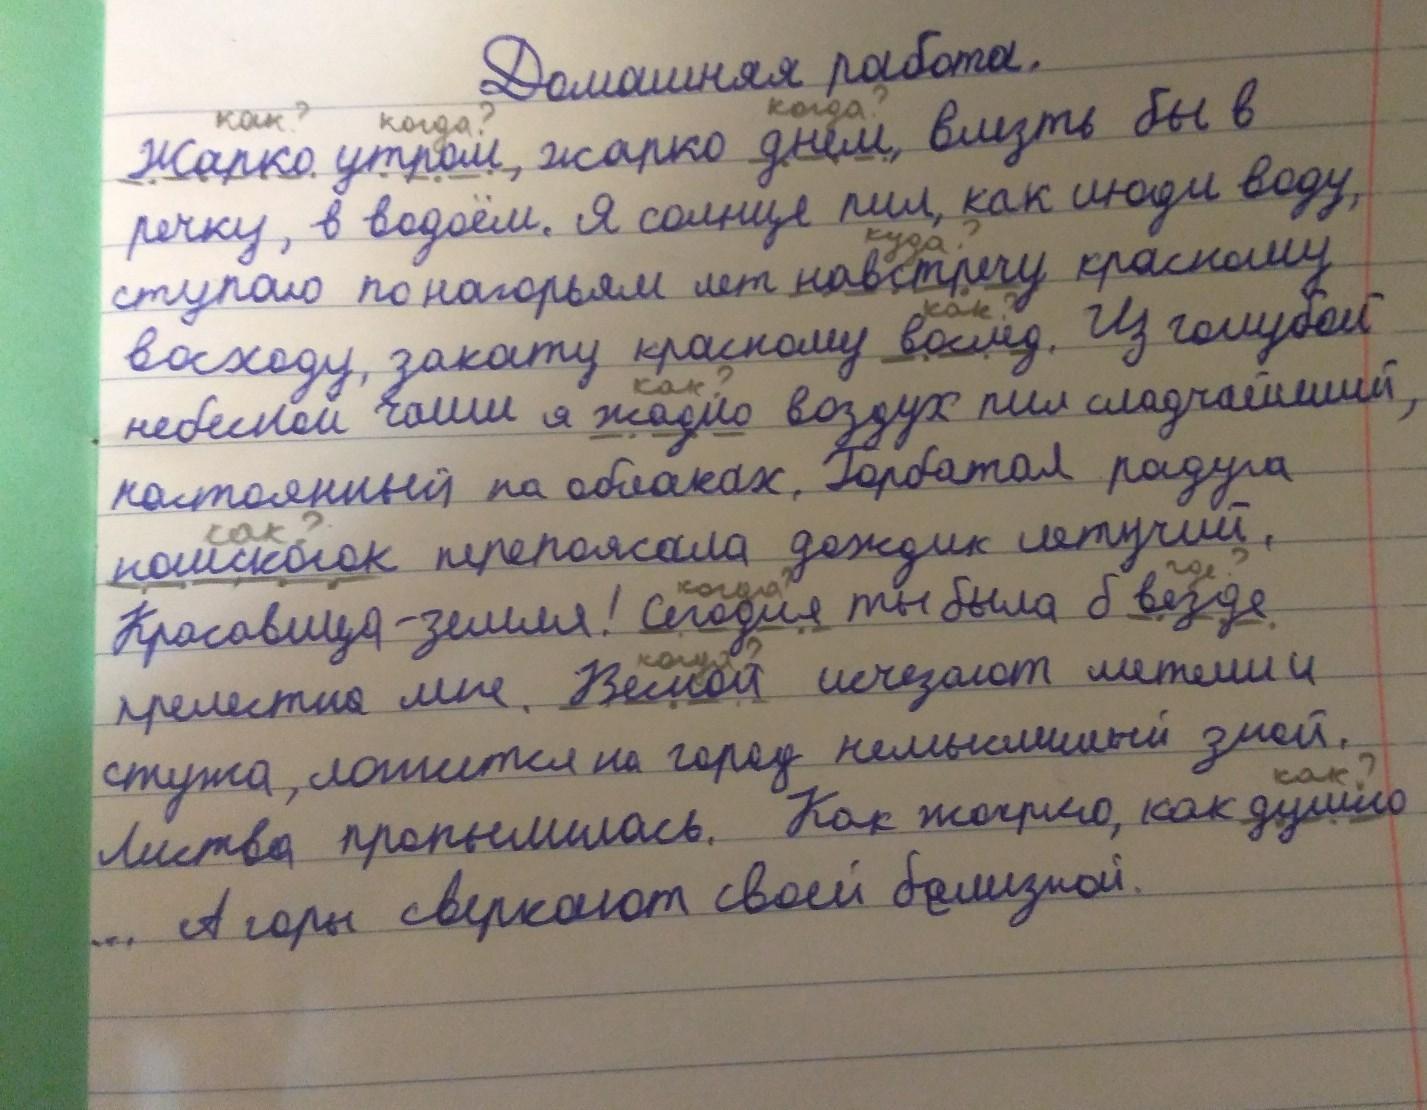 Домашняя работа.
как? когда? когда?
Жарко утром, жарко днем, влезть бы в
речку, в водоём. Я солнце пил, как люди воду,
куда?
ступаю по нагорьям лет навстречу красному
как?
восходу, закату красному вослед. Из голубой
как?
небесной чаши я жадно воздух пил сладчайший,
настоянный на облаках. Горбатая радуга
как?
наискосок перепоясала дождик летучий.
когда? где?
Красавица-земля! Сегодня ты была б везде
когда?
прелестна мне. Весной исчезают метели и
стужа, ложится на город немыслимый зной.
как?
Листва пропылилась. Как жарко, как душно
... А горы сверкают своей белизной.